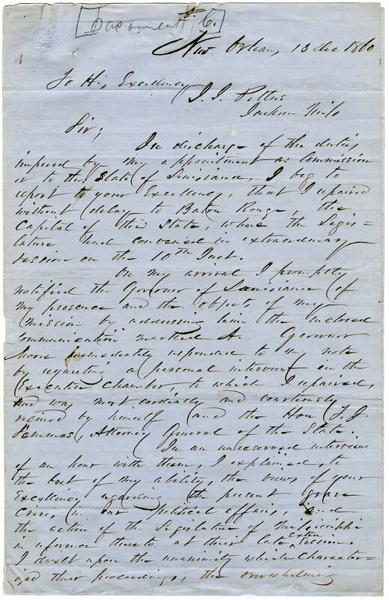 [Document C.]
New Orleans, 13 Dec 1860
To His Excellency
J. J. Pettus
Jackson Miss
Sir;
In discharge of the duties
imposed by my appointment as Commission
er to the State of Louisiana, I beg to
report to your Excellency, that I repaired
without delay to Baton Rouge, the
Capital of this State, where the Legis-
lature had convened in extraordinary
session on the 10th Inst.
On my arrival I promptly
notified the Governor of Louisiana of
my presence and the objects of my
mission by addressing him the enclosed
communication marked A. Governor
Moore immediately responded to my note
by requesting a personal interview in the
Executive Chamber, to which I repaired,
and was most cordially and courteously
received by himself and the Hon
Attorney General of the State.
In an unreserved interview
of an hour with them, I explained, to
the best of my ability, the views of your
Excellency regarding the present grave
crisis in our political affairs, and
the action of the Legislature of Mississippi
in reference thereto at their late session.
I dwelt upon the unanimity which character-
ized their proceedings, the overwhelming